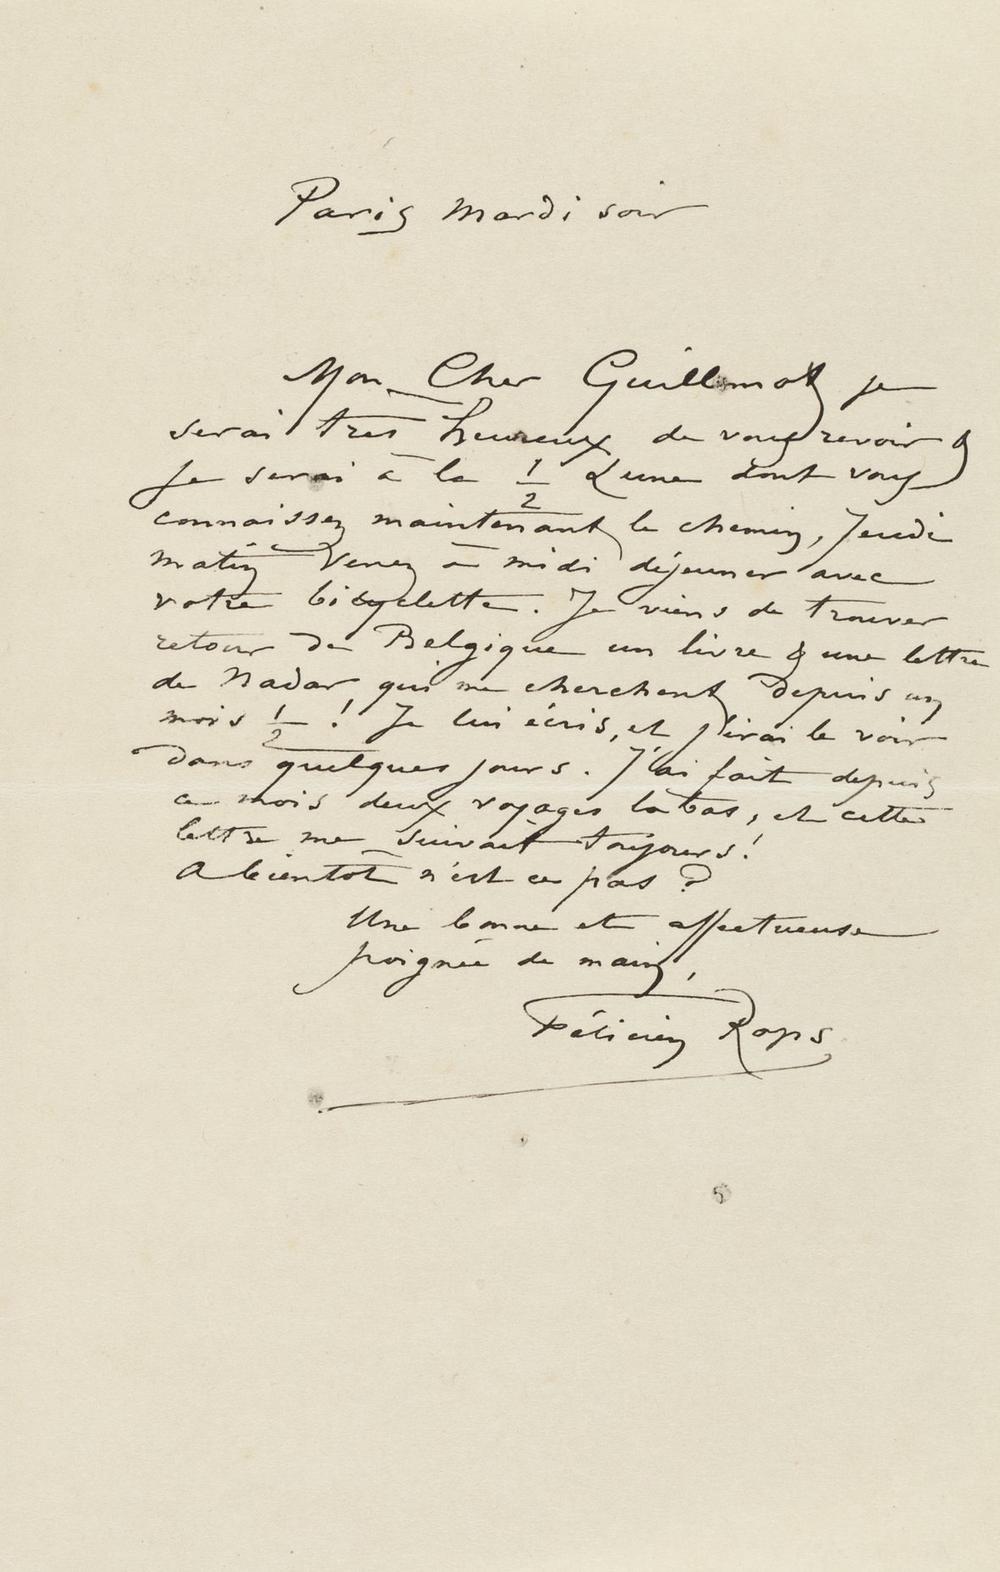 Paris Mardi soir
Mon Cher Guillemot je
serai tres heureux de vous revoir &
Je serai à la 1/2 Lune dont vous
connaissez maintenant le chemin, Jeudi
matin Venez à midi déjeuner avec
votre bicyclette. Je viens de trouver
retour de Belgique un livre & une lettre
de Nadar qui me cherchent depuis un
mois 1/2 ! Je lui écris, et j'irai le voir
dans quelques jours. J'ai fait depuis
ce mois deux voyages la bas, et cette
lettre me suivait toujours!
A bientôt n'est ce pas ?
Une bonne et affectueuse
poignée de main,
Félicien Rops